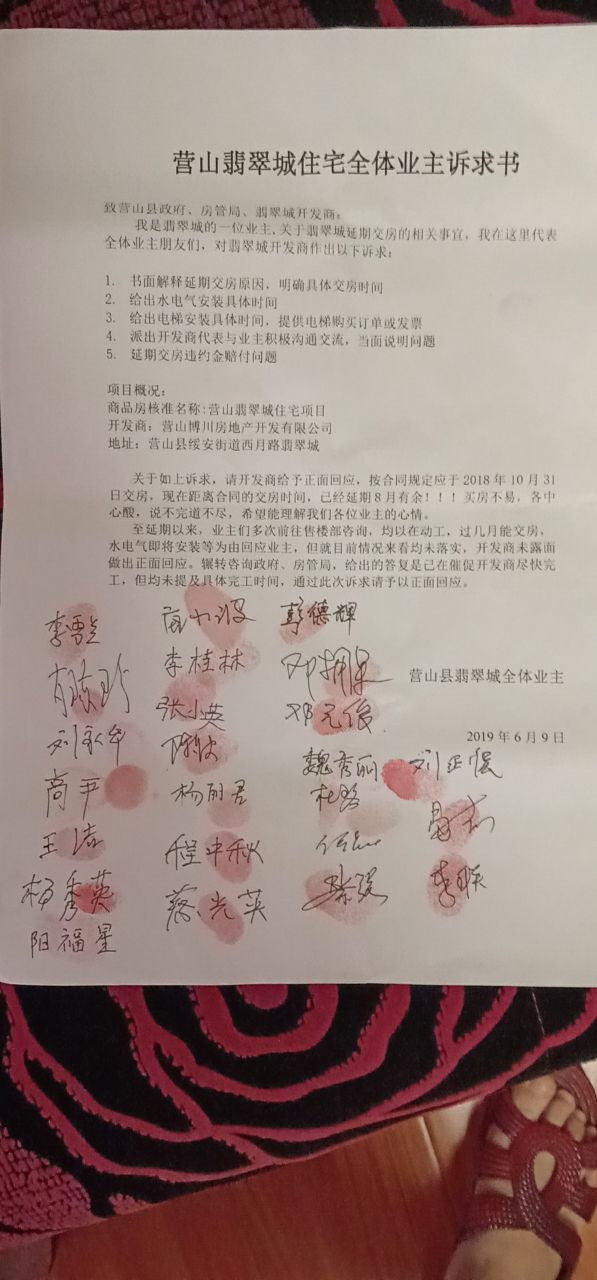 营山翡翠城住宅全体业主诉求书
致营山县政府、房管局、翡翠城开发商：
我是翡翠城的一位业主，关于翡翠城延期交房的相关事宜，我在这里代表
全体业主朋友们，对翡翠城开发商作出以下诉求：
1. 书面解释延期交房原因，明确具体交房时间
2. 给出水电气安装具体时间
3. 给出电梯安装具体时间，提供电梯购买订单或发票
4. 派出开发商代表与业主积极沟通交流，当面说明问题
5. 延期交房违约金赔付问题
项目概况：
商品房核准名称:营山翡翠城住宅项目
开发商：营山博川房地产开发有限公司
地址：营山县绥安街道西月路翡翠城
关于如上诉求，请开发商给予正面回应，按合同规定应于 2018 年 10 月 31
日交房，现在距离合同的交房时间，已经延期 8 月有余！！！买房不易，各中
心酸，说不完道不尽，希望能理解我们各位业主的心情。
至延期以来，业主们多次前往售楼部咨询，均以在动工，过几月能交房，
水电气即将安装等为由回应业主，但就目前情况来看均未落实，开发商未露面
做出正面回应。辗转咨询政府、房管局，给出的答复是已在催促开发商尽快完
工，但均未提及具体完工时间，通过此次诉求请予以正面回应。
彭德辉
李桂林
营山县翡翠城全体业主
张小英 邓元俊
2019 年 6 月 9 日
魏秀丽
高平 杨丽君 杜路
王洁 程中秋
杨秀英 蔡光英
阳福星